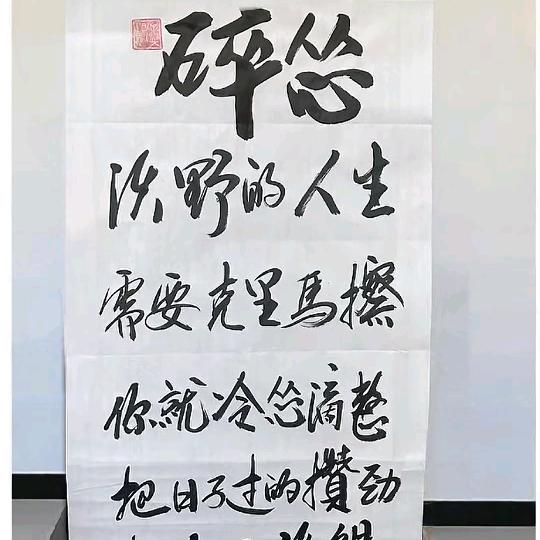 碎怂
沃野的人生
需要克里馬擦
你就冷怂滴整
把日子过的攒劲